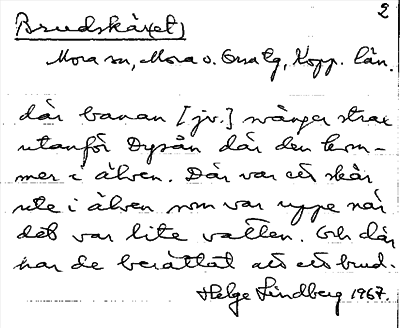 2
Brudskäret)
Mora sn, Mora o. Orsa tg, Kopp. län.
där banan [jv.] svänger strax
utanför Dysån där den kom-
mer i älven. Där var ett skär
ute i älven som var uppe när
det var lite vatten. Och där
har de berättat att ett brud-
Helge Lindberg 1967.